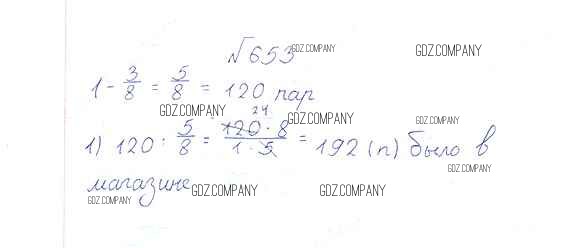 №653
1 - 3/8 = 5/8 = 120 пар
24
1) 120 : 5/8 = 120 · 8 / 1 · 5 = 192 (п) было в
магазине
GDZ.COMPANY
GDZ.COMPANY
GDZ.COMPANY
GDZ.COMPANY
GDZ.COMPANY
GDZ.COMPANY
GDZ.COMPANY
GDZ.COMPANY
GDZ.COMPANY